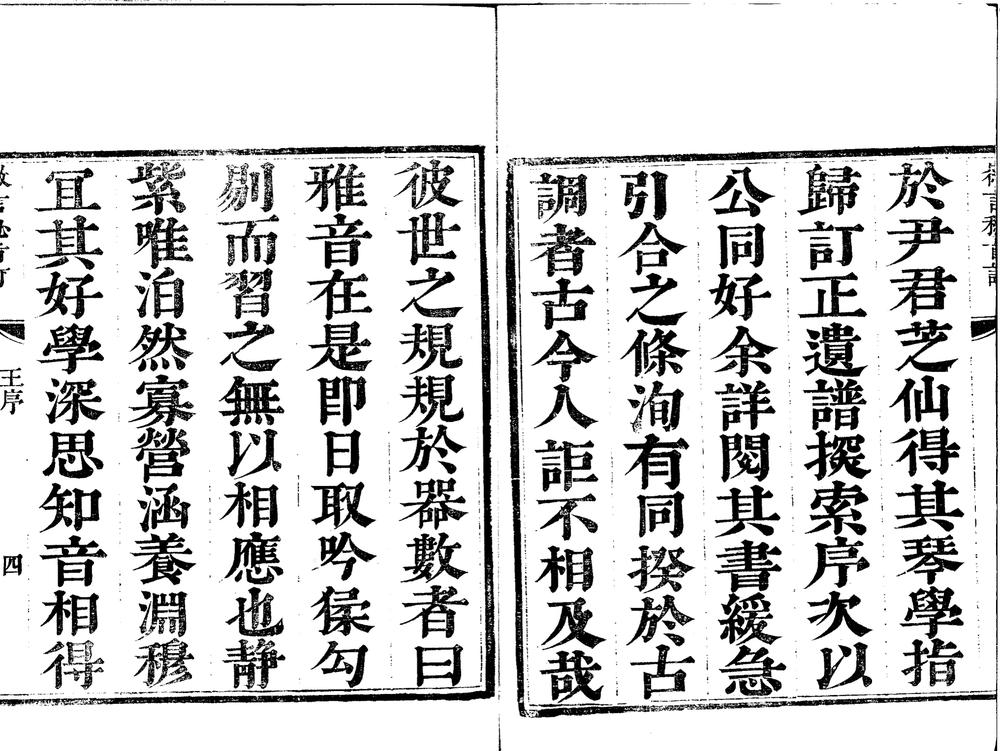 於尹君芝仙得其琴學指
歸訂正遺譜探索序次以
公同好余詳閱其書緩急
引合之條洵有同揆於古
調者古今人詎不相及哉
彼世之規規於器數者曰
雅音在是卽日取吟猱勾
剔而習之無以相應也靜
紫唯泊然寡營涵養淵穆
宜其好學深思知音相得
王序
四